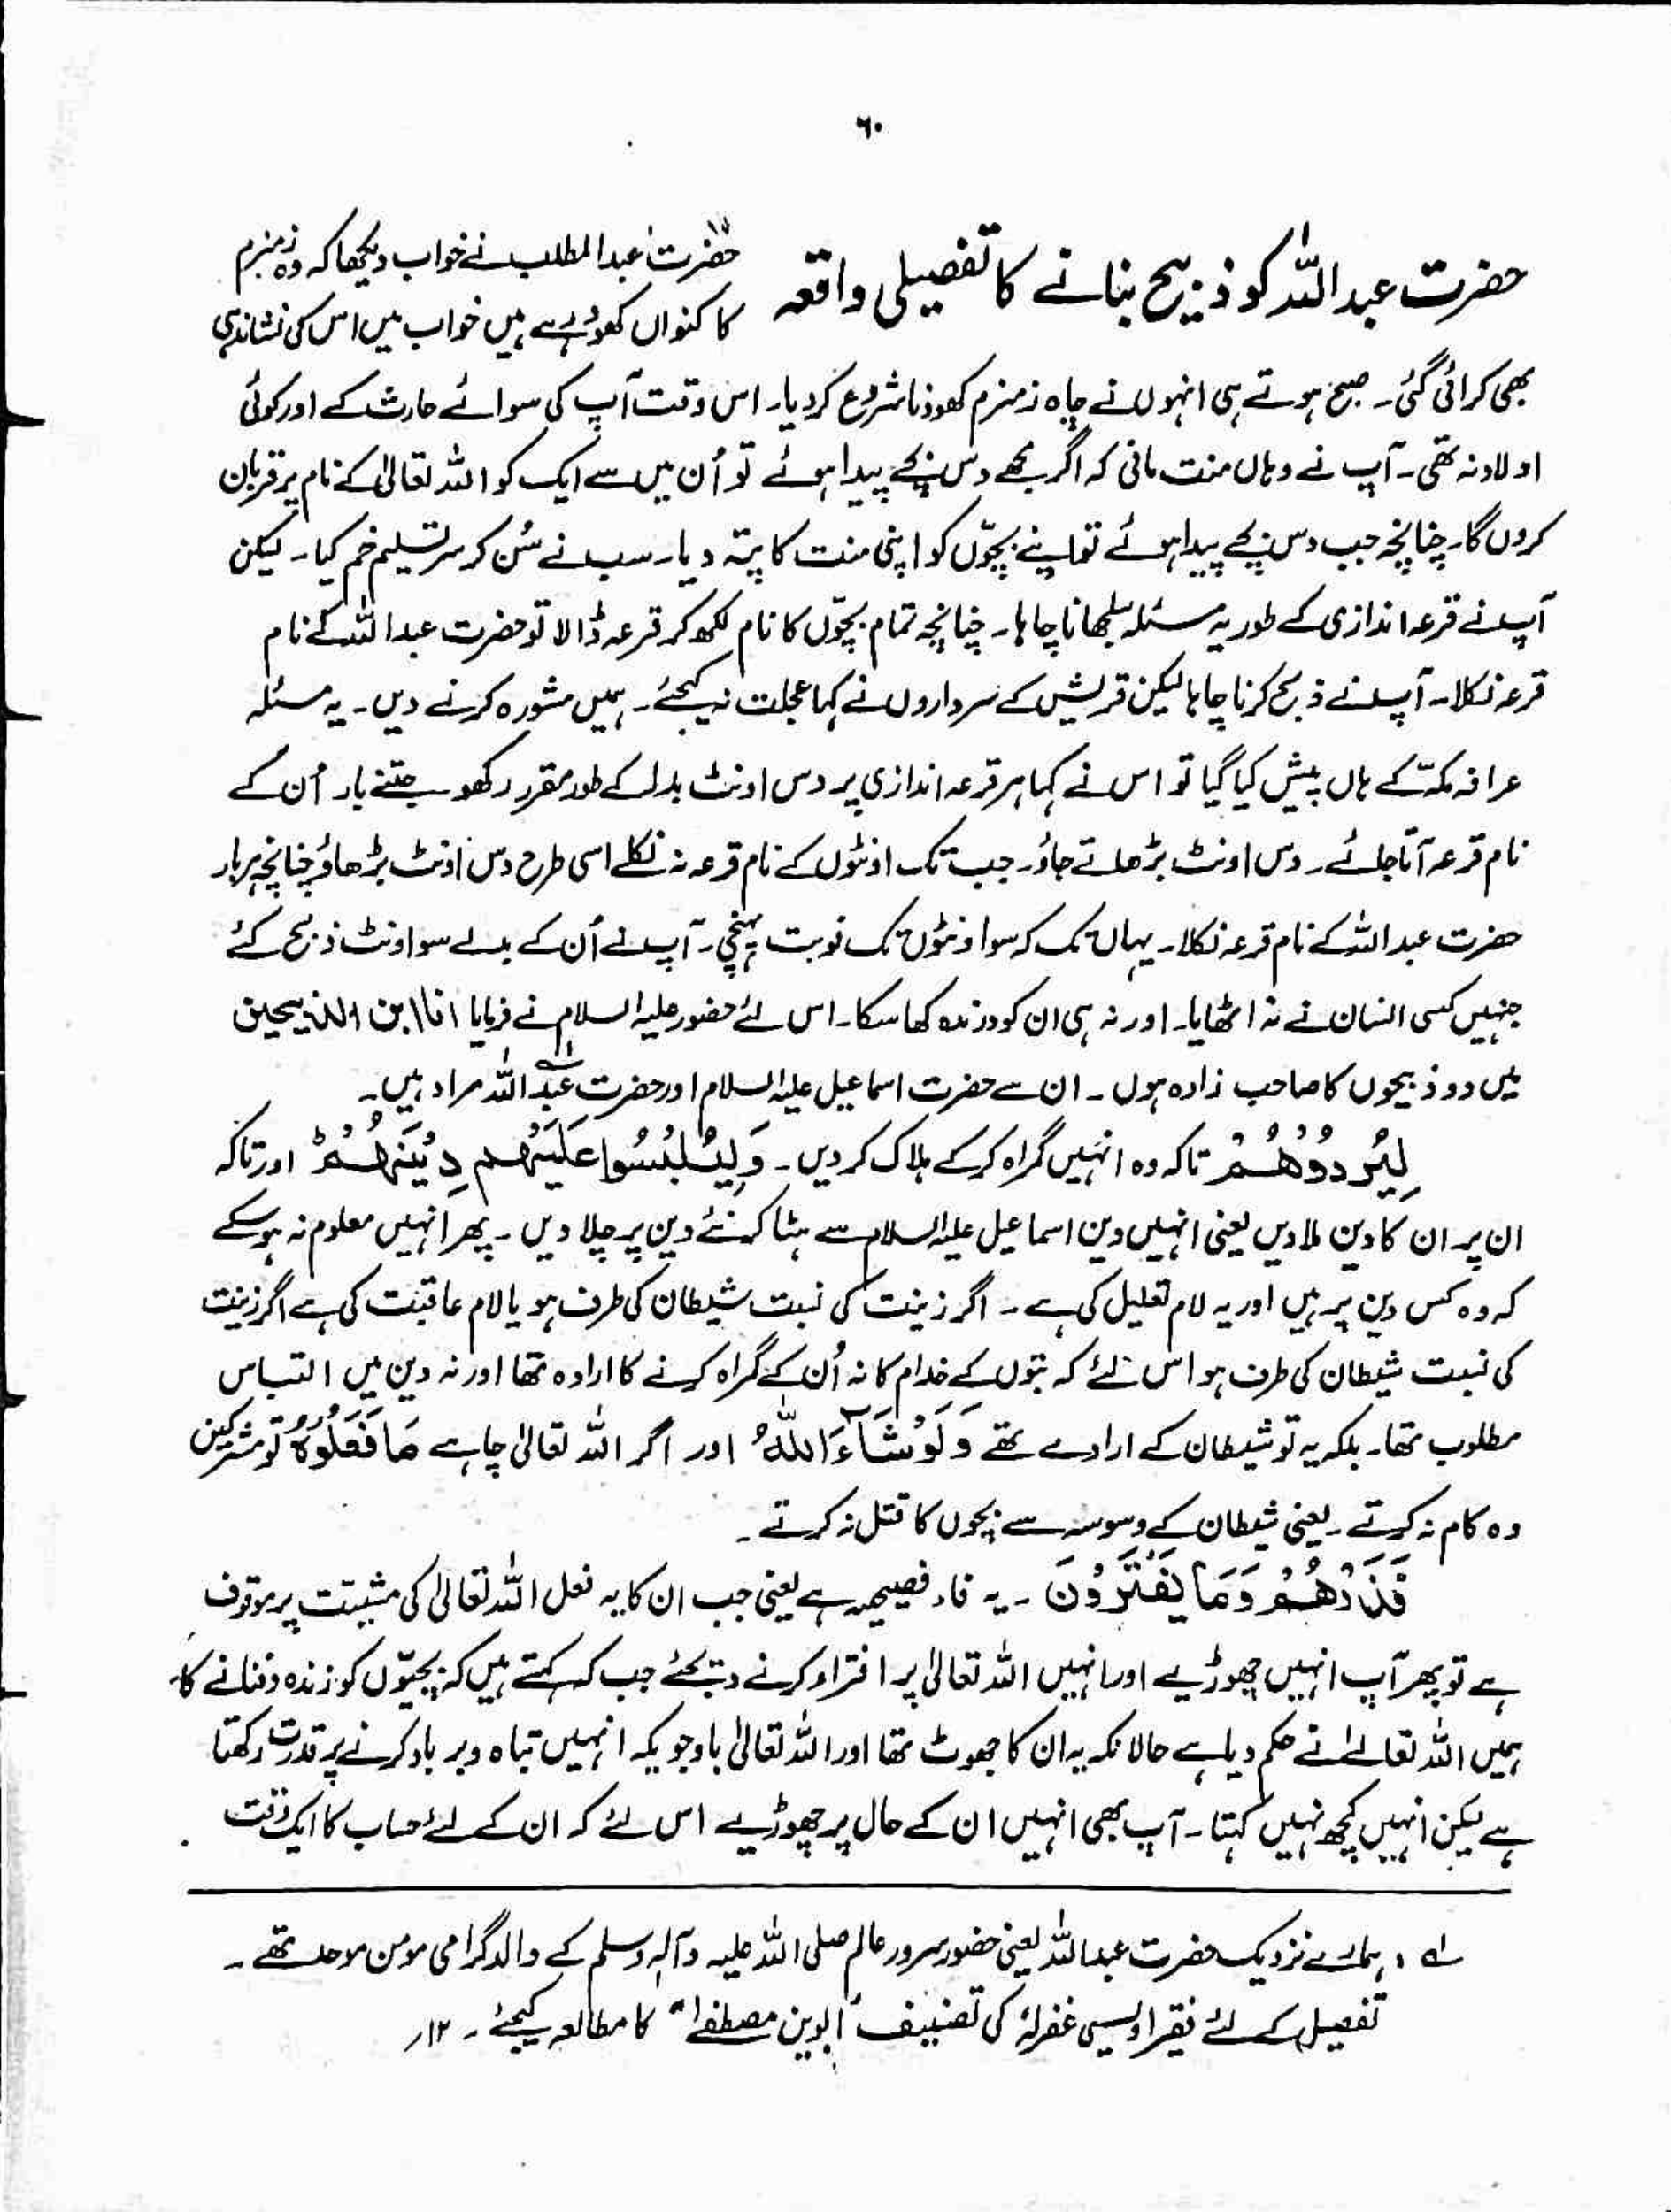 ۶۰
حضرت عبداللہ کو ذبیح بنانے کا تفصیلی واقعہ
حضرت عبدالمطلب نے خواب دیکھا کہ وہ زمزم
کا کنواں کھود رہے ہیں خواب میں اس کی نشاندہی
بھی کرائی گئی۔ صبح ہوتے ہی انہوں نے چاہ زمزم کھودنا شروع کر دیا۔ اس وقت آپ کی سوائے حارث کے اور کوئی
اولاد نہ تھی۔ آپ نے وہاں منت مانی کہ اگر مجھے دس بچے پیدا ہوئے تو اُن میں سے ایک کو اللہ تعالیٰ کے نام پر قربان
کروں گا۔ چنانچہ جب دس بچے پیدا ہوئے تو اپنے بچّوں کو اپنی منت کا پتہ دیا۔ سب نے سُن کر سر تسلیم خم کیا۔ لیکن
آپ نے قرعہ اندازی کے طور یہ مسئلہ سلجھانا چاہا۔ چنانچہ تمام بچّوں کا نام لکھ کر قرعہ ڈالا تو حضرت عبداللہ کے نام
قرعہ نکلا۔ آپ نے ذبح کرنا چاہا لیکن قریش کے سرداروں نے کہا عجلت نہ کیجئے۔ ہمیں مشورہ کرنے دیں۔ یہ مسئلہ
عرافہ مکہّ کے ہاں پیش کیا گیا تو اس نے کہا ہر قرعہ اندازی پر دس اونٹ بدل کے طور مقرر رکھو جتنے بار اُن کے
نام قرعہ آتا جائے۔ دس اونٹ بڑھاتے جاؤ۔ جب تک اونٹوں کے نام قرعہ نہ نکلے اسی طرح دس اونٹ بڑھاؤ چنانچہ ہر بار
حضرت عبداللہ کے نام قرعہ نکلا۔ یہاں تک کہ سو اونٹوں تک نوبت پہنچی۔ آپ نے اُن کے بدلے سو اونٹ ذبح کئے
جنہیں کسی انسان نے نہ اٹھایا۔ اور نہ ہی ان کو درندہ کھا سکا۔ اس لئے حضور علیہ السلام نے فرمایا انا ابن الذبیحین
میں دو ذبیحوں کا صاحب زادہ ہوں۔ ان سے حضرت اسماعیل علیہ السلام اور حضرت عبداللہ مراد ہیں۔
لِيُرْدُوْهُمْ تاکہ وہ انہیں گمراہ کر کے ہلاک کر دیں۔ وَلِيَلْبِسُوا عَلَيْهِم دِيْنَهُمْ اور تاکہ
ان پر ان کا دین ملا دیں یعنی انہیں دین اسماعیل علیہ السلام سے ہٹا کر نئے دین پر چلا دیں۔ پھر انہیں معلوم نہ ہو سکے
کہ وہ کس دین پر ہیں اور یہ لام تعلیل کی ہے۔ اگر زینت کی نسبت شیطان کی طرف ہو یا لام عاقبت کی ہے اگر زینت
کی نسبت شیطان کی طرف ہو اس لئے کہ بتوں کے خدام کا نہ اُن کے گمراہ کرنے کا ارادہ تھا اور نہ دین میں التباس
مطلوب تھا۔ بلکہ یہ تو شیطان کے ارادے تھے وَلَوْ شَآءَ اللّٰهُ اور اگر اللہ تعالیٰ چاہے مَا فَعَلُوْهُ تو مشرکین
وہ کام نہ کرتے۔ یعنی شیطان کے وسوسہ سے بچوں کا قتل نہ کرتے۔
فَذَرْهُمْ وَمَا يَفْتَرُوْنَ ۔ یہ فاء فصیحہ ہے یعنی جب ان کا یہ فعل اللہ تعالیٰ کی مشیّت پر موقوف
ہے تو پھر آپ انہیں چھوڑیے اور انہیں اللہ تعالیٰ پر افتراء کرنے دیجئے جب کہ کہتے ہیں کہ بچیّوں کو زندہ دفنانے کا
ہمیں اللہ تعالےٰ نے حکم دیا ہے حالانکہ یہ ان کا جھوٹ تھا اور اللہ تعالیٰ باوجویکہ انہیں تباہ و برباد کرنے پر قدرت رکھتا
ہے لیکن انہیں کچھ نہیں کہتا۔ آپ بھی انہیں ان کے حال پر چھوڑیے اس لئے کہ ان کے لئے حساب کا ایک وقت
لے ، ہمارے نزدیک حضرت عبداللہ یعنی حضور سرور عالم صلی اللہ علیہ وآلہ وسلم کے والد گرامی مومن موحد تھے۔
تفصیل کے لئے فقیر اویسی غفرلہٗ کی تصنیف "ابوین مصطفےٰ" کا مطالعہ کیجئے۔ ۱۲ر